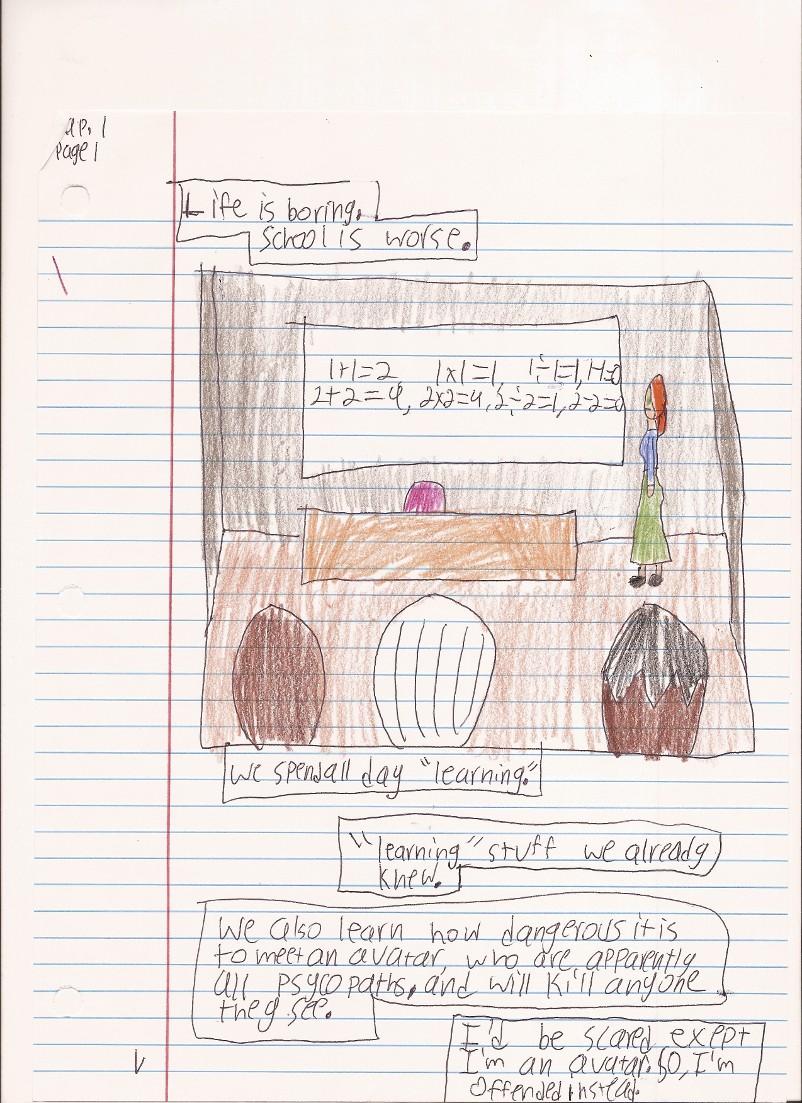 ap. 1
Page 1
Life is boring.
School is worse.
1+1=2, 1x1=1, 1÷1=1, 1-1=0
2+2=4, 2x2=4, 2÷2=1, 2-2=0
We spend all day "learning."
"learning" stuff we already
knew.
We also learn how dangerous it is
to meet an avatar, who are apparently
all psycopaths, and will kill anyone
they see.
I'd be scared, exept
I'm an avatar. So, I'm
offended instead.